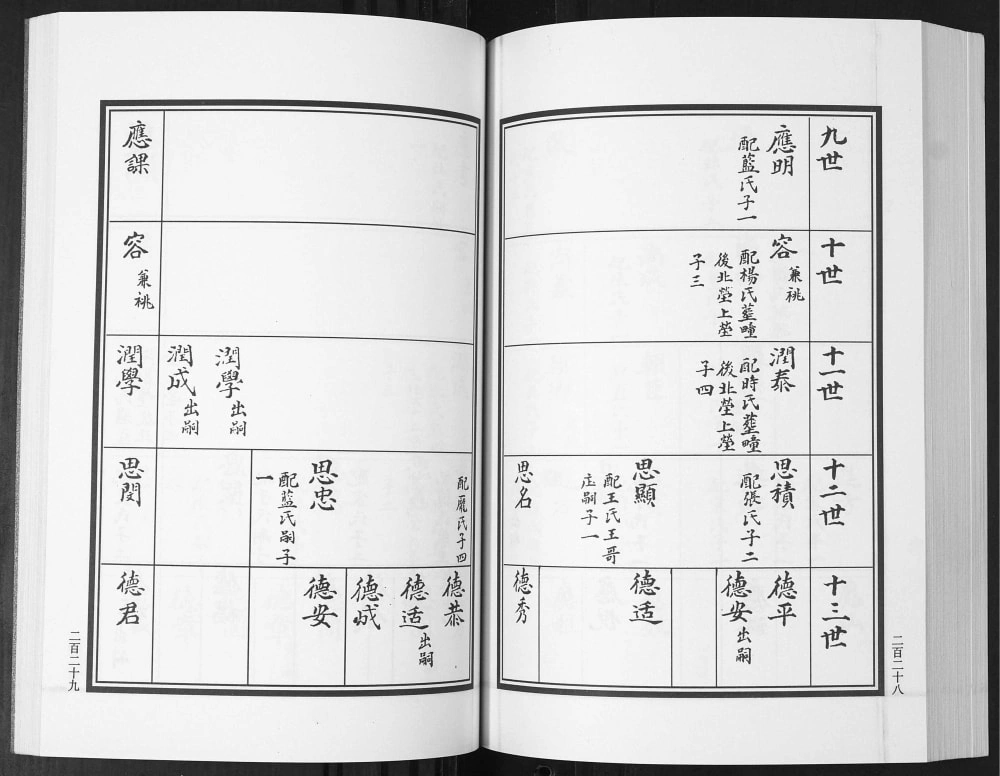 九世
十世
十一世
十二世
十三世
應明
配籃氏子一
容
兼祧
配楊氏塟疃
後北塋上塋
子三
潤泰
配時氏塟疃
後北塋上塋
子四
思積
配張氏子二
德平
德安出嗣
思顯
配王氏王哥
庄嗣子一
德适
思名
德秀
二百二十八
配龐氏子四
德恭
德适出嗣
德成
思忠
配藍氏嗣子
一
德安
潤學出嗣
潤成出嗣
應課
容
兼祧
潤學
思閔
德君
二百二十九